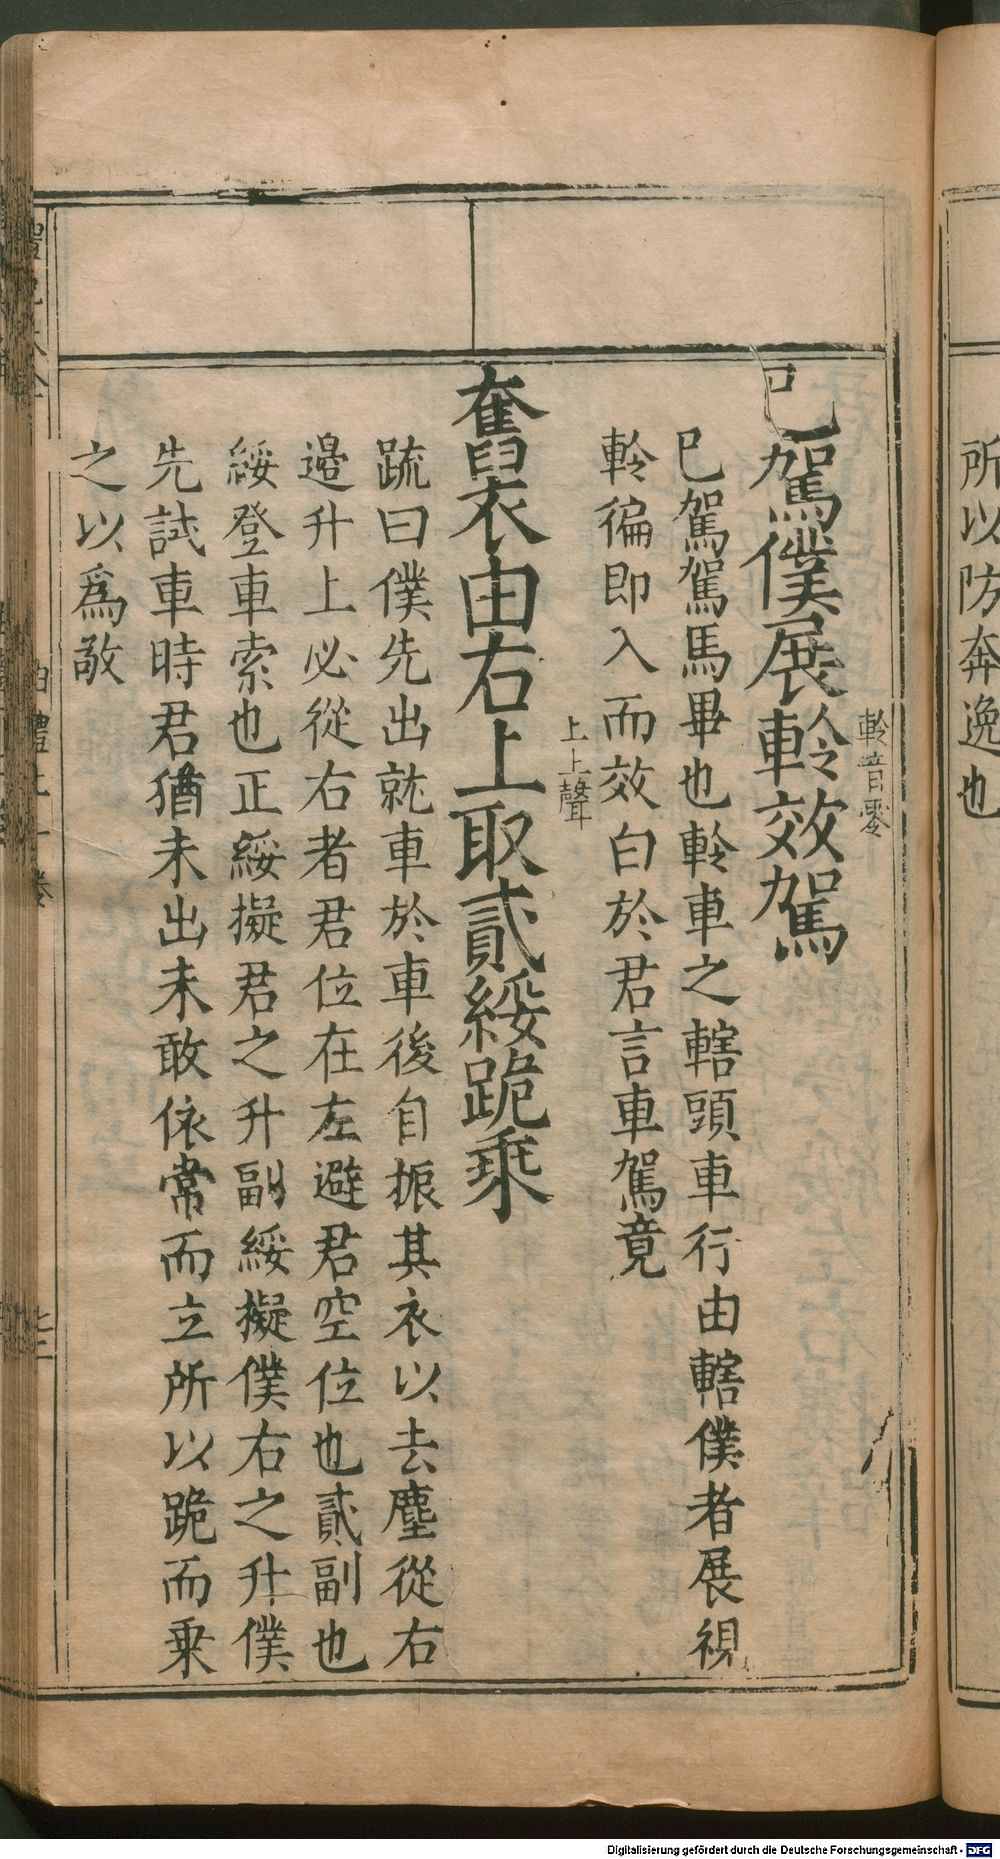 所以防奔逸也
軨音零
已駕僕展軨效駕
已駕駕馬畢也軨車之轄頭車行由轄僕者展視
軨徧即入而效白於君言車駕竟
上上聲
奮衣由右上取貳綏跪乘
疏曰僕先出就車於車後自振其衣以去塵從右
邉升上必從右者君位在左避君空位也貳副也
綏登車索也正綏擬君之升副綏擬僕右之升僕
先試車時君猶未出未敢依常而立所以跪而乗
之以爲敬
Digitalisierung gefördert durch die Deutsche Forschungsgemeinschaft - DFG